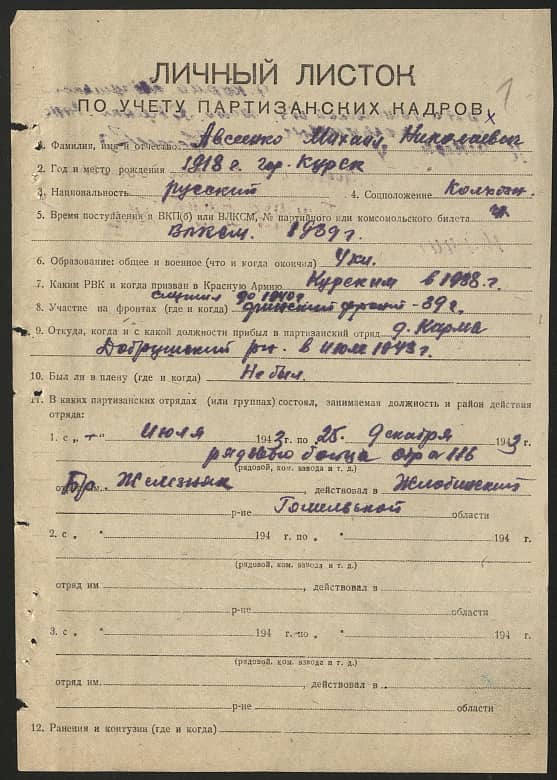 1
ЛИЧНЫЙ ЛИСТОК
ПО УЧЕТУ ПАРТИЗАНСКИХ КАДРОВ
1. Фамилия, имя и отчество Авсеенко Михаил Николаевич
2. Год и место рождения 1918 г. гор. Курск
3. Национальность русский 4. Соцположение Колхозн.
5. Время поступления в ВКП(б) или ВЛКСМ, № партийного или комсомольского билета чл.
ВЛКСМ. 1939 г.
6. Образование: общее и военное (что и когда окончил) 4 кл.
7. Каким РВК и когда призван в Красную Армию Курским в 1938 г.
служил до 1940 г.
8. Участие на фронтах (где и когда) финский фронт - 39 г.
9. Откуда, когда и с какой должности прибыл в партизанский отряд д. Карма
Добрушский рн. в июле 1943 г.
10. Был ли в плену (где и когда) Не был.
11. В каких партизанских отрядах (или группах) состоял, занимаемая должность и район действия
отряда:
1. с „ — " Июля 1943 г. по 25 декабря 1943 г.
рядового бойца отр 116
(рядовой, ком. взвода и т. д.)
отряд им. Бр. Железняк, действовал в Жлобинский
р-не Гомельской области
2. с „ " 194 г. по „ " 194 г.
(рядовой, ком. взвода и т. д.)
отряд им , действовал в
р-не области
3. с „ " 194 г. по „ " 194 г.
(рядовой, ком. взвода и т. д.)
отряд им. , действовал в
р-не области
12. Ранения и контузии (где и когда)